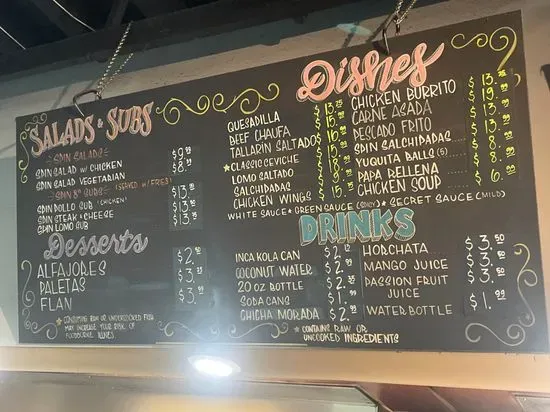 SALADS & SUBS
SPIN SALADS
SPIN SALAD W/ CHICKEN $9.
SPIN SALAD VEGETARIAN $8.
SPIN 8" SUBS (SERVED W/FRIES)
SPIN POLLO SUB (CHICKEN) $13.
SPIN STEAK & CHEESE $13.
SPIN LOMO SUB $13.
Desserts
ALFAJORES $2.
PALETAS $3.
FLAN $3.
CONSUMING RAW OR UNDERCOOKED FISH
MAY INCREASE YOUR RISK OF
FOODBORNE
Dishes
QUESADILLA
BEEF CHAUFA
TALLARIN SALTADO
★CLASSIC CEVICHE
LOMO SALTADO
SALCHIPADAS
CHICKEN WINGS
CHICKEN BURRITO
CARNE ASADA
PESCADO FRITO
SPIN SALCHIPADAS
YUQUITA BALLS (5)
PAPA RELLENA
CHICKEN SOUP
WHITE SAUCE★ GREEN SAUCE (SPICY)★ SECRET SAUCE (MILD)
DRINKS
INCA KOLA CAN $2.
COCONUT WATER $2.
20 OZ BOTTLE
SODA CANS
CHICHA MORADA
HORCHATA $3.50
MANGO JUICE $3.50
PASSION FRUIT
JUICE $3.50
WATER BOTTLE $1.
★ CONTAINS RAW OR
UNCOOKED INGREDIENTS